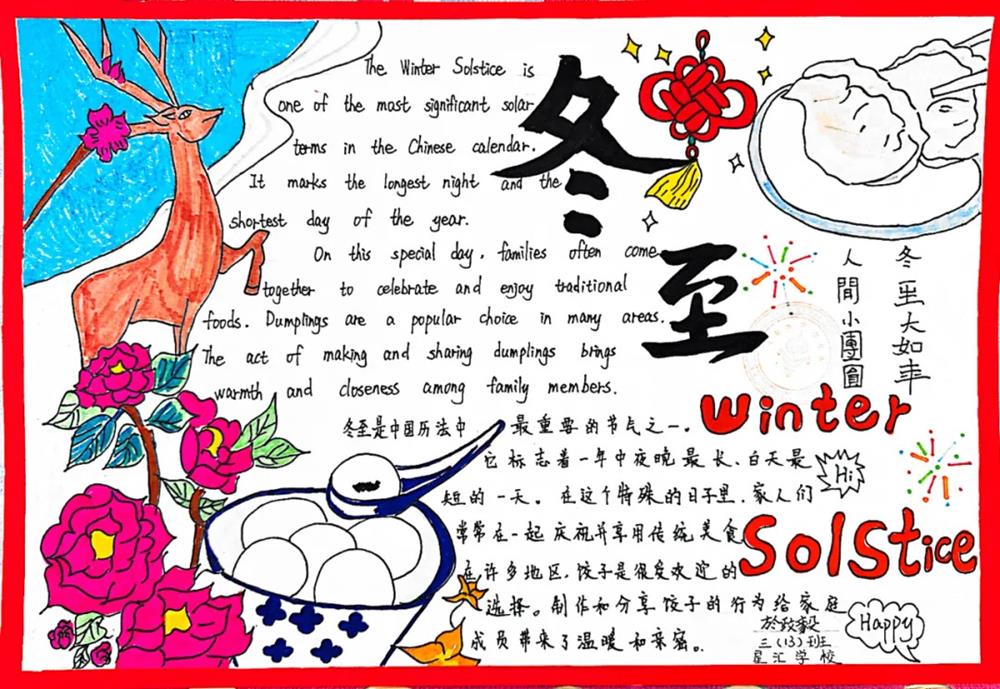 The Winter Solstice is
one of the most significant solar
terms in the Chinese calendar.
It marks the longest night and the
shortest day of the year.
On this special day, families often come
together to celebrate and enjoy traditional
foods. Dumplings are a popular choice in many areas.
The act of making and sharing dumplings brings
warmth and closeness among family members.
冬至
冬至大如年
人間小團圓
Winter
Solstice
Hi
冬至是中国历法中最重要的节气之一。
它标志着一年中夜晚最长、白天最
短的一天。在这个特殊的日子里,家人们
常常在一起庆祝并享用传统美食
在许多地区,饺子是很受欢迎的
选择。制作和分享饺子的行为给家庭
成员带来了温暖和亲密。
Happy
三(13)班
星汇学校